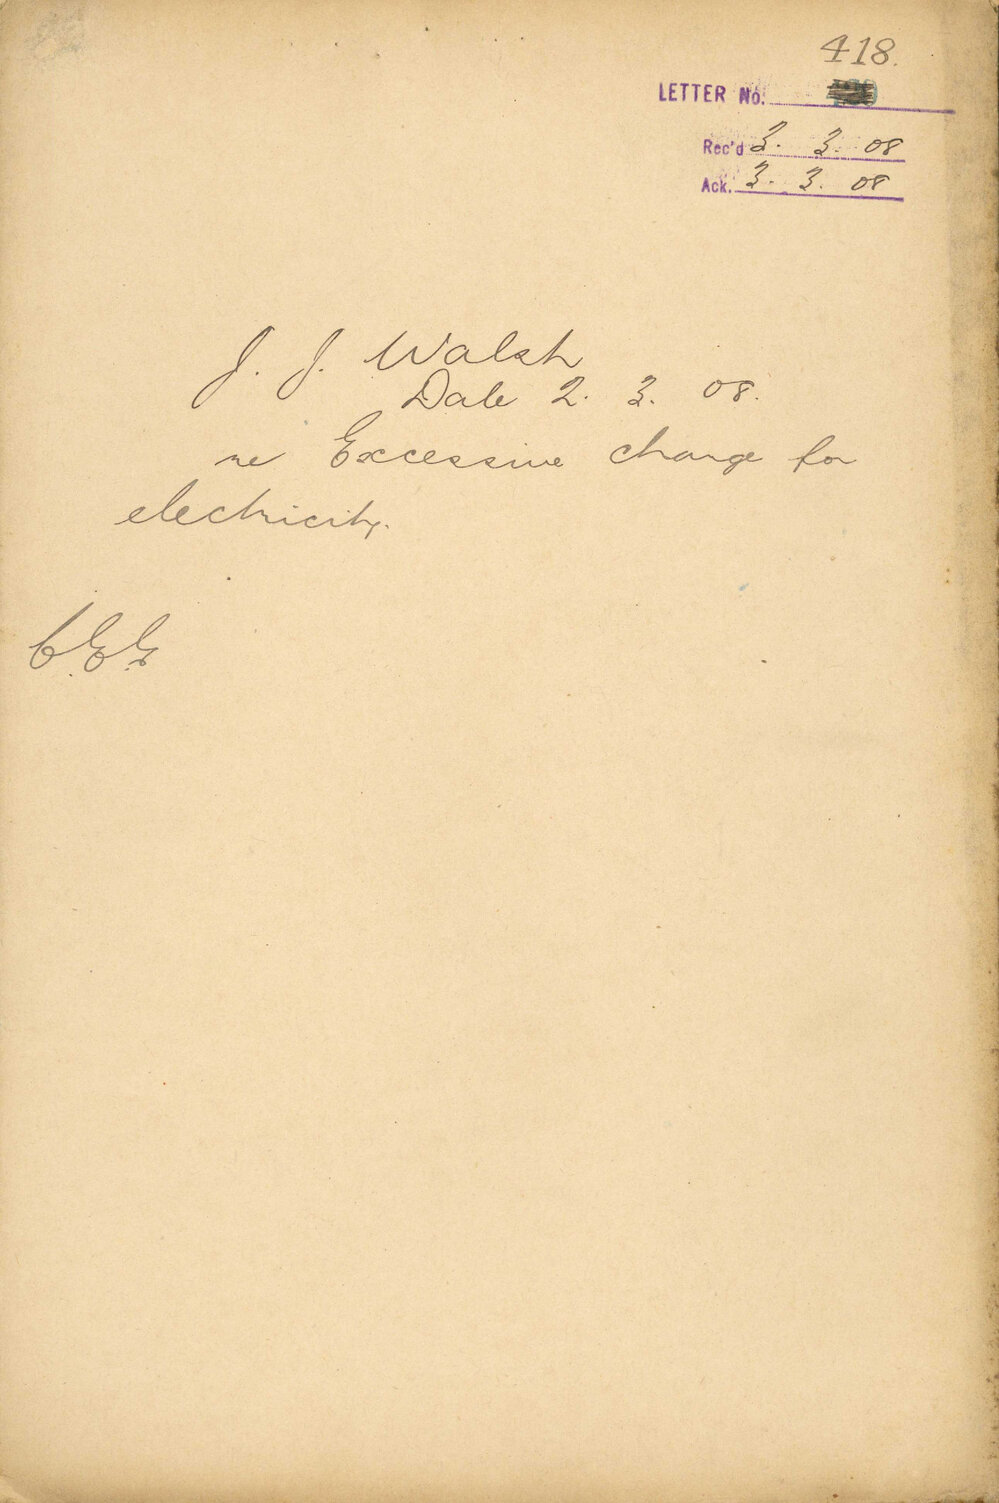 418.
LETTER No.
Rec'd 3. 3. 08
Ack. 3. 3. 08
J. J. Walsh
Date 2. 3. 08.
re Excessive charge for
electricity.